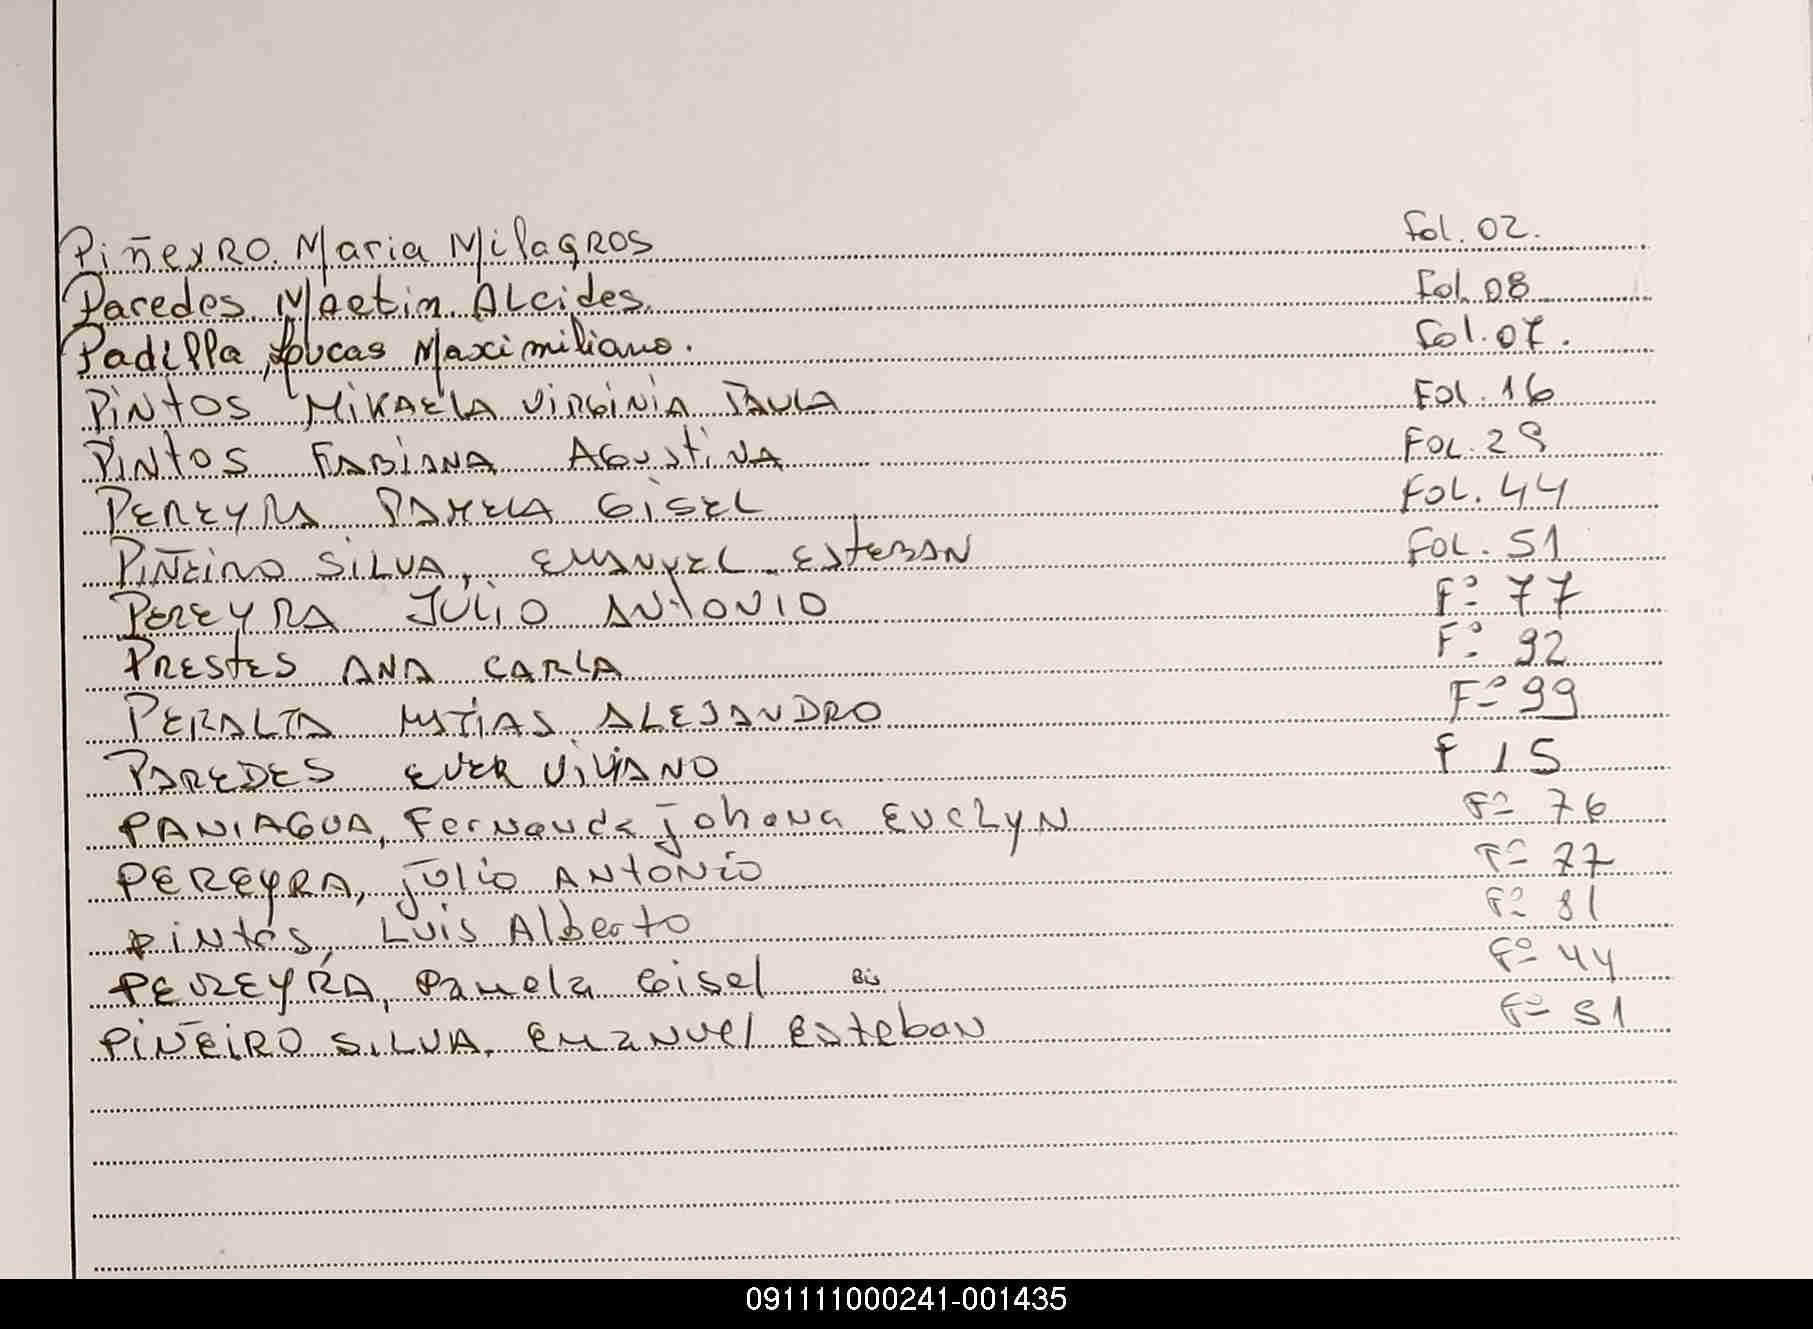 Piñeyro Maria Milagros Fol. 02.
Paredes Martin Alcides. Fol. 08
Padilla, Lucas Maximiliano. Fol. 07.
PINTOS MIKAELA VIRGINIA PAULA Fol. 16
PINTOS FABIANA AGUSTINA FOL. 29
PEREYRA PAMELA GISEL FOL. 44
PIÑEIRO SILVA, EMANUEL ESTEBAN FOL. 51
PEREYRA JULIO ANTONIO Fº 77
PRESTES ANA CARLA Fº 92
PERALTA MATIAS ALEJANDRO Fº 99
PAREDES EVER F 15
PANIAGUA, Fernanda Johana Evelyn Fº 76
PEREYRA, Julio ANTONIO Fº 77
Pintos, Luis Alberto Fº 81
PEREYRA, Pamela Gisel Bis Fº 44
PIÑEIRO SILVA, Emanuel Esteban Fº 51
091111000241-001435